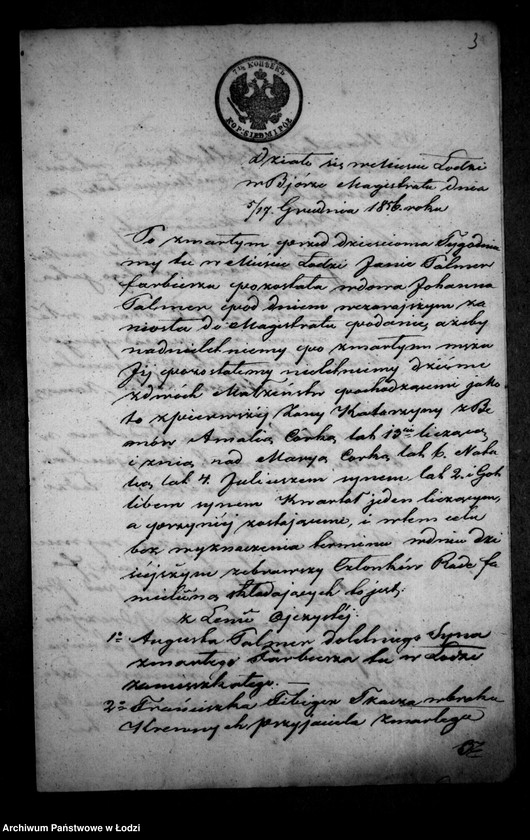 3
7½ КОПѢЕКЪ
KOP: SIEDM I PÓŁ
Działo się w Mieście Łodzi
w Bjórze Magistratu dnia
5/17 Grudnia 1856 roku
Po zmartym przed dziesięcioma Tygodnia
my tu w Mieście Łodzi Janie Palmer
farbierzu pozostała wdowa Johanna
Palmer pod dniem wczorajszym za
niosła do Magistratu podanie, ażeby
nad nieletniemy po zmartym mężu
Jej pozostałemy nieletniemy dziećmi
z dwóch Małżeństw pochodzącemi jako
to z pierwszej Żony Katarzyny z Be
mów Amalią Córką lat 13 liczącą
i z nią nad Maryą Corką lat 6. Nata
lią lat 4. Juliuszem synem lat 2. i Got
libem synem Kwartał jeden liczącym,
a przy niej zostającemi, i w tem celu
bez wyznaczenia terminu w dniu dzi
siejszym zebrawszy Członków Rade fa
mielijną składających to jest:
z Lenii Ojczystej.
1º Augusta Palmer doletniego Syna
zmartego farbierza tu w Łodzi
zamieszkałego.
2º Franciszka Fibiger Tkacza w braku
Krewnych przyjaciela zmarłego
Archiwum Państwowe w Łodzi